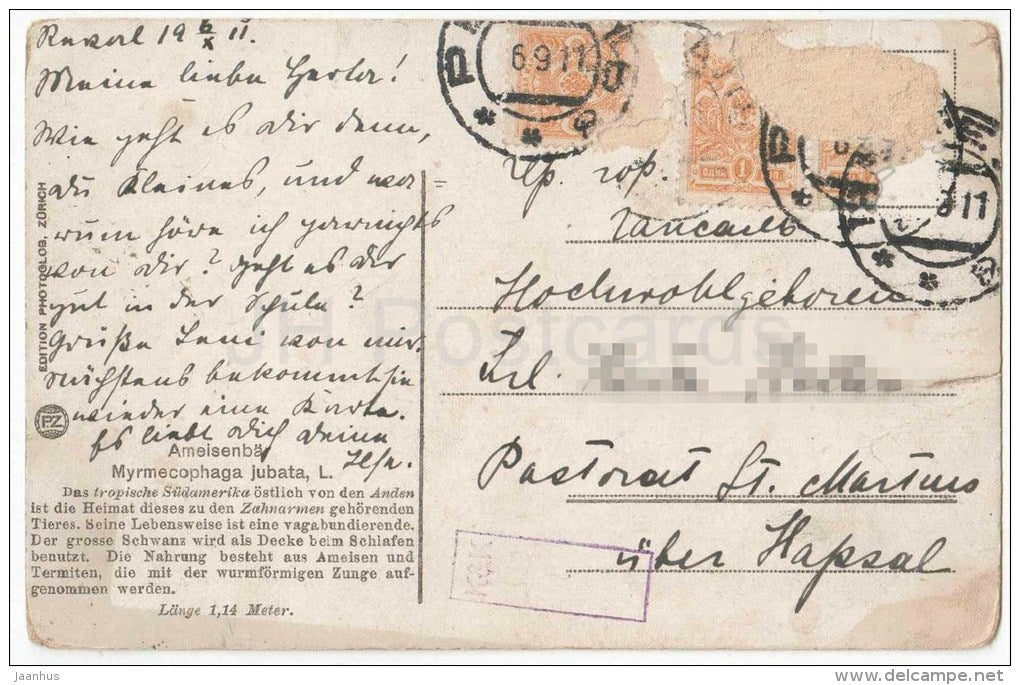 Reval 19 6/X 11.
Meine liebe Herta!
Wie geht es Dir denn,
du Kleines, und wa=
rum höre ich garnichts
von Dir? Geht es Dir
gut in der Schule?
Grüße Leni von mir.
nächstens bekommt sie
wieder eine Karte.
Es liebt Dich Deine
Ilse.
EDITION PHOTOGLOB, ZÜRICH
P.Z
Ameisenbä
Myrmecophaga jubata, L.
Das tropische Südamerika östlich von den Anden
ist die Heimat dieses zu den Zahnarmen gehörenden
Tieres. Seine Lebensweise ist eine vagabundierende.
Der grosse Schwanz wird als Decke beim Schlafen
benutzt. Die Nahrung besteht aus Ameisen und
Termiten, die mit der wurmförmigen Zunge auf-
genommen werden.
Länge 1,14 Meter.
6 9 11
1
11
гор.
Гапсаль
Hochwohlgeboren
Frl.
Pastorat St. Martens
über Hapsal
JH Postcards
jaanhus
www.delcampe.net